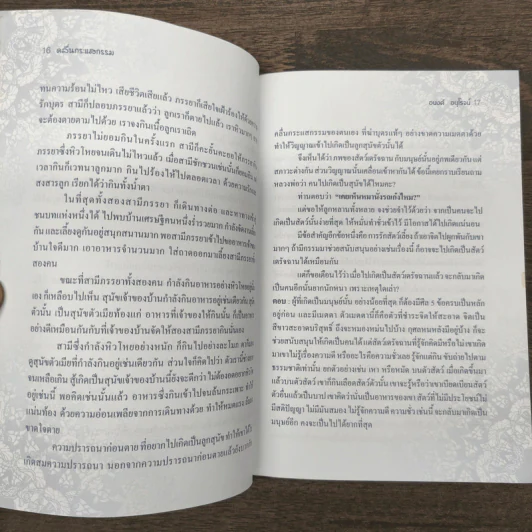 16 คลื่นกระแสกรรม
ทนความร้อนไม่ไหว เสียชีวิตเสียแล้ว ภรรยาก็เสียใจเฝ้าร้องไห้ด้วย
รักบุตร สามีก็ปลอบภรรยาแล้วว่า ลูกเราก็ตายไปแล้ว
จะต้องตายตามไปด้วย เราจงกินเนื้อลูกเราเถิด
ภรรยาไม่ยอมกินในครั้งแรก สามีก็
ภรรยาซึ่งหิวโหยจนเดินไม่ไหวแล้ว เมื่อสามี
เวลากินก็เวทนาลูกมาก กินไปร้องไห้ไปตลอดเวลา ด้วยความ
สงสารลูก เรียกได้ว่ากินทั้งน้ำตา
ในที่สุดทั้งสองสามีภรรยา ก็เดินทางต่อ
ชนบทแห่งหนึ่งได้ ไปพบบ้านเศรษฐีคนหนึ่งร่ำรวยมาก
กัน และเลี้ยงดูกันอยู่สนุกสนานมาก พอสามีภรรยาเข้าไปขออาหาร
บ้านใจดีมาก เอาอาหารจำนวนมาก ใส่ถาดออกมาเลี้ยงสามีภรรยา
สองคน
ขณะที่สามีภรรยาทั้งสองคน กำลังกินอาหารอย่างหิวโหย
เองก็เหลือบไปเห็น สุนัขเจ้าของบ้านกำลังกินอาหารอยู่เช่นเดียวกัน
ตัวนั้น เป็นสุนัขตัวเมียท้องแก่ อาหารที่เจ้าของให้กินนั้น ก็เป็น
อย่างดีเหมือนกันกับที่เจ้าของบ้านจัดให้สองสามีภรรยากินนั่นเอง
สามีซึ่งกำลังหิวอาหารอย่างหนัก ก็กินไปอย่างละโมภ
ดูสุนัขตัวเมียที่กำลังกินอยู่เช่นเดียวกัน ส่วนใจก็คิดไปว่า
จนเหลือเกิน สู้เกิดเป็นสุนัขเจ้าของบ้านนี้ยังจะดีกว่า ไม่ต้องอดอยาก
อยู่เช่นนี้ พอคิดเช่นนั้นแล้ว อาหารซึ่งกินเข้าไปจนล้นกระเพาะ
แน่นท้อง ด้วยความอ่อนเพลียจากการเดินทางด้วย ทำให้
ขาดใจตาย
ความปรารถนาก่อนตาย ที่อยากไปเกิดเป็นลูกสุนัข ทำให้
เกิดสมความปรารถนา นอกจากความปรารถนาก่อนตายแล้ว
17
คลื่นกระแสกรรมของตนเอง ที่ฆ่าบุตรแท้ๆ อย่างขาดความเมตตาด้วย
ทำให้วิญญาณเข้าไปเกิดเป็นลูกสุนัขตัวนั้นได้
จึงเห็นได้ว่า ภพของสัตว์เดรัจฉาน กับมนุษย์นั้นอยู่ภพเดียวกัน แต่
สภาวะต่างกัน ส่วนวิญญาณนั้นเคลื่อนเข้าหากันได้ ข้อนี้เคยกราบเรียนถาม
หลวงพ่อว่า คนไปเกิดเป็นสุนัขได้ไหมคะ?
ท่านตอบว่า “เคยเห็นหมานั่งรถเก๋งไหม?”
แต่ขอให้ลูกหลานทั้งหลาย จงช่วยจำไว้ด้วยว่า จากเป็นคนจะไป
เกิดเป็นสัตว์นั้นง่ายที่สุด ให้หมั่นทำชั่วเข้าไว้ มีโอกาสได้เกิดแน่นอน
มีข้อสำคัญอีกข้อหนึ่งคือ การรักสัตว์เลี้ยง ถ้าเอาจิตไปผูกพันกับเขา
มากๆ ถ้ามีกรรมมาช่วยสนับสนุนอย่างเช่นเรื่องนี้ ก็อาจจะไปเกิดเป็นสัตว์
เดรัจฉานได้เหมือนกัน
แต่ก็ขอเตือนไว้ว่า เมื่อไปเกิดเป็นสัตว์เดรัจฉานแล้ว จะกลับมาเกิด
เป็นคนอีกนั้นยากนักหนา เพราะเหตุใดเล่า?
ตอบ : ผู้ที่เกิดเป็นมนุษย์นั้น อย่างน้อยที่สุด ก็ต้องมีศีล ๕ ข้อครบเป็นหลัก
อยู่ก่อน และมีเมตตา ตัวเมตตานี้คือตัวที่ชำระจิตใจให้สะอาด จิตเป็น
สีขาวสะอาดบริสุทธิ์ ถึงจะหมองหม่นไปบ้าง กุศลหนหลังมีอยู่บ้าง ก็จะ
ช่วยสนับสนุนให้เกิดเป็นคนได้ แต่สัตว์เดรัจฉานที่รู้จักคิดมีหรือไม่ เขาเกิด
มาเขาไม่รู้จักความดี หรืออะไรคือความชั่วเลย รู้จักแต่กิน ขับถ่าย ไปตาม
ธรรมชาติเท่านั้น ยกตัวอย่างเช่น เหา หรือหมัด บนตัวสัตว์ เมื่อเกิดขึ้นมา
แล้วบนตัวสัตว์ เขาก็กินเลือดสัตว์ตัวนั้น เขาจะรู้หรือว่าเขาเบียดเบียนสัตว์
ตัวอื่นแล้วเป็นบาป เขาคิดว่านั่นเป็นอาหารของเขา สัตว์ที่ไม่มีประโยชน์ ไม่
มีสติปัญญา ไม่มีมันสมอง ไม่รู้จักความดี ความชั่ว เช่นนี้ จะกลับมาเกิดเป็น
มนุษย์อีก คงจะเป็นไปได้ยากที่สุด